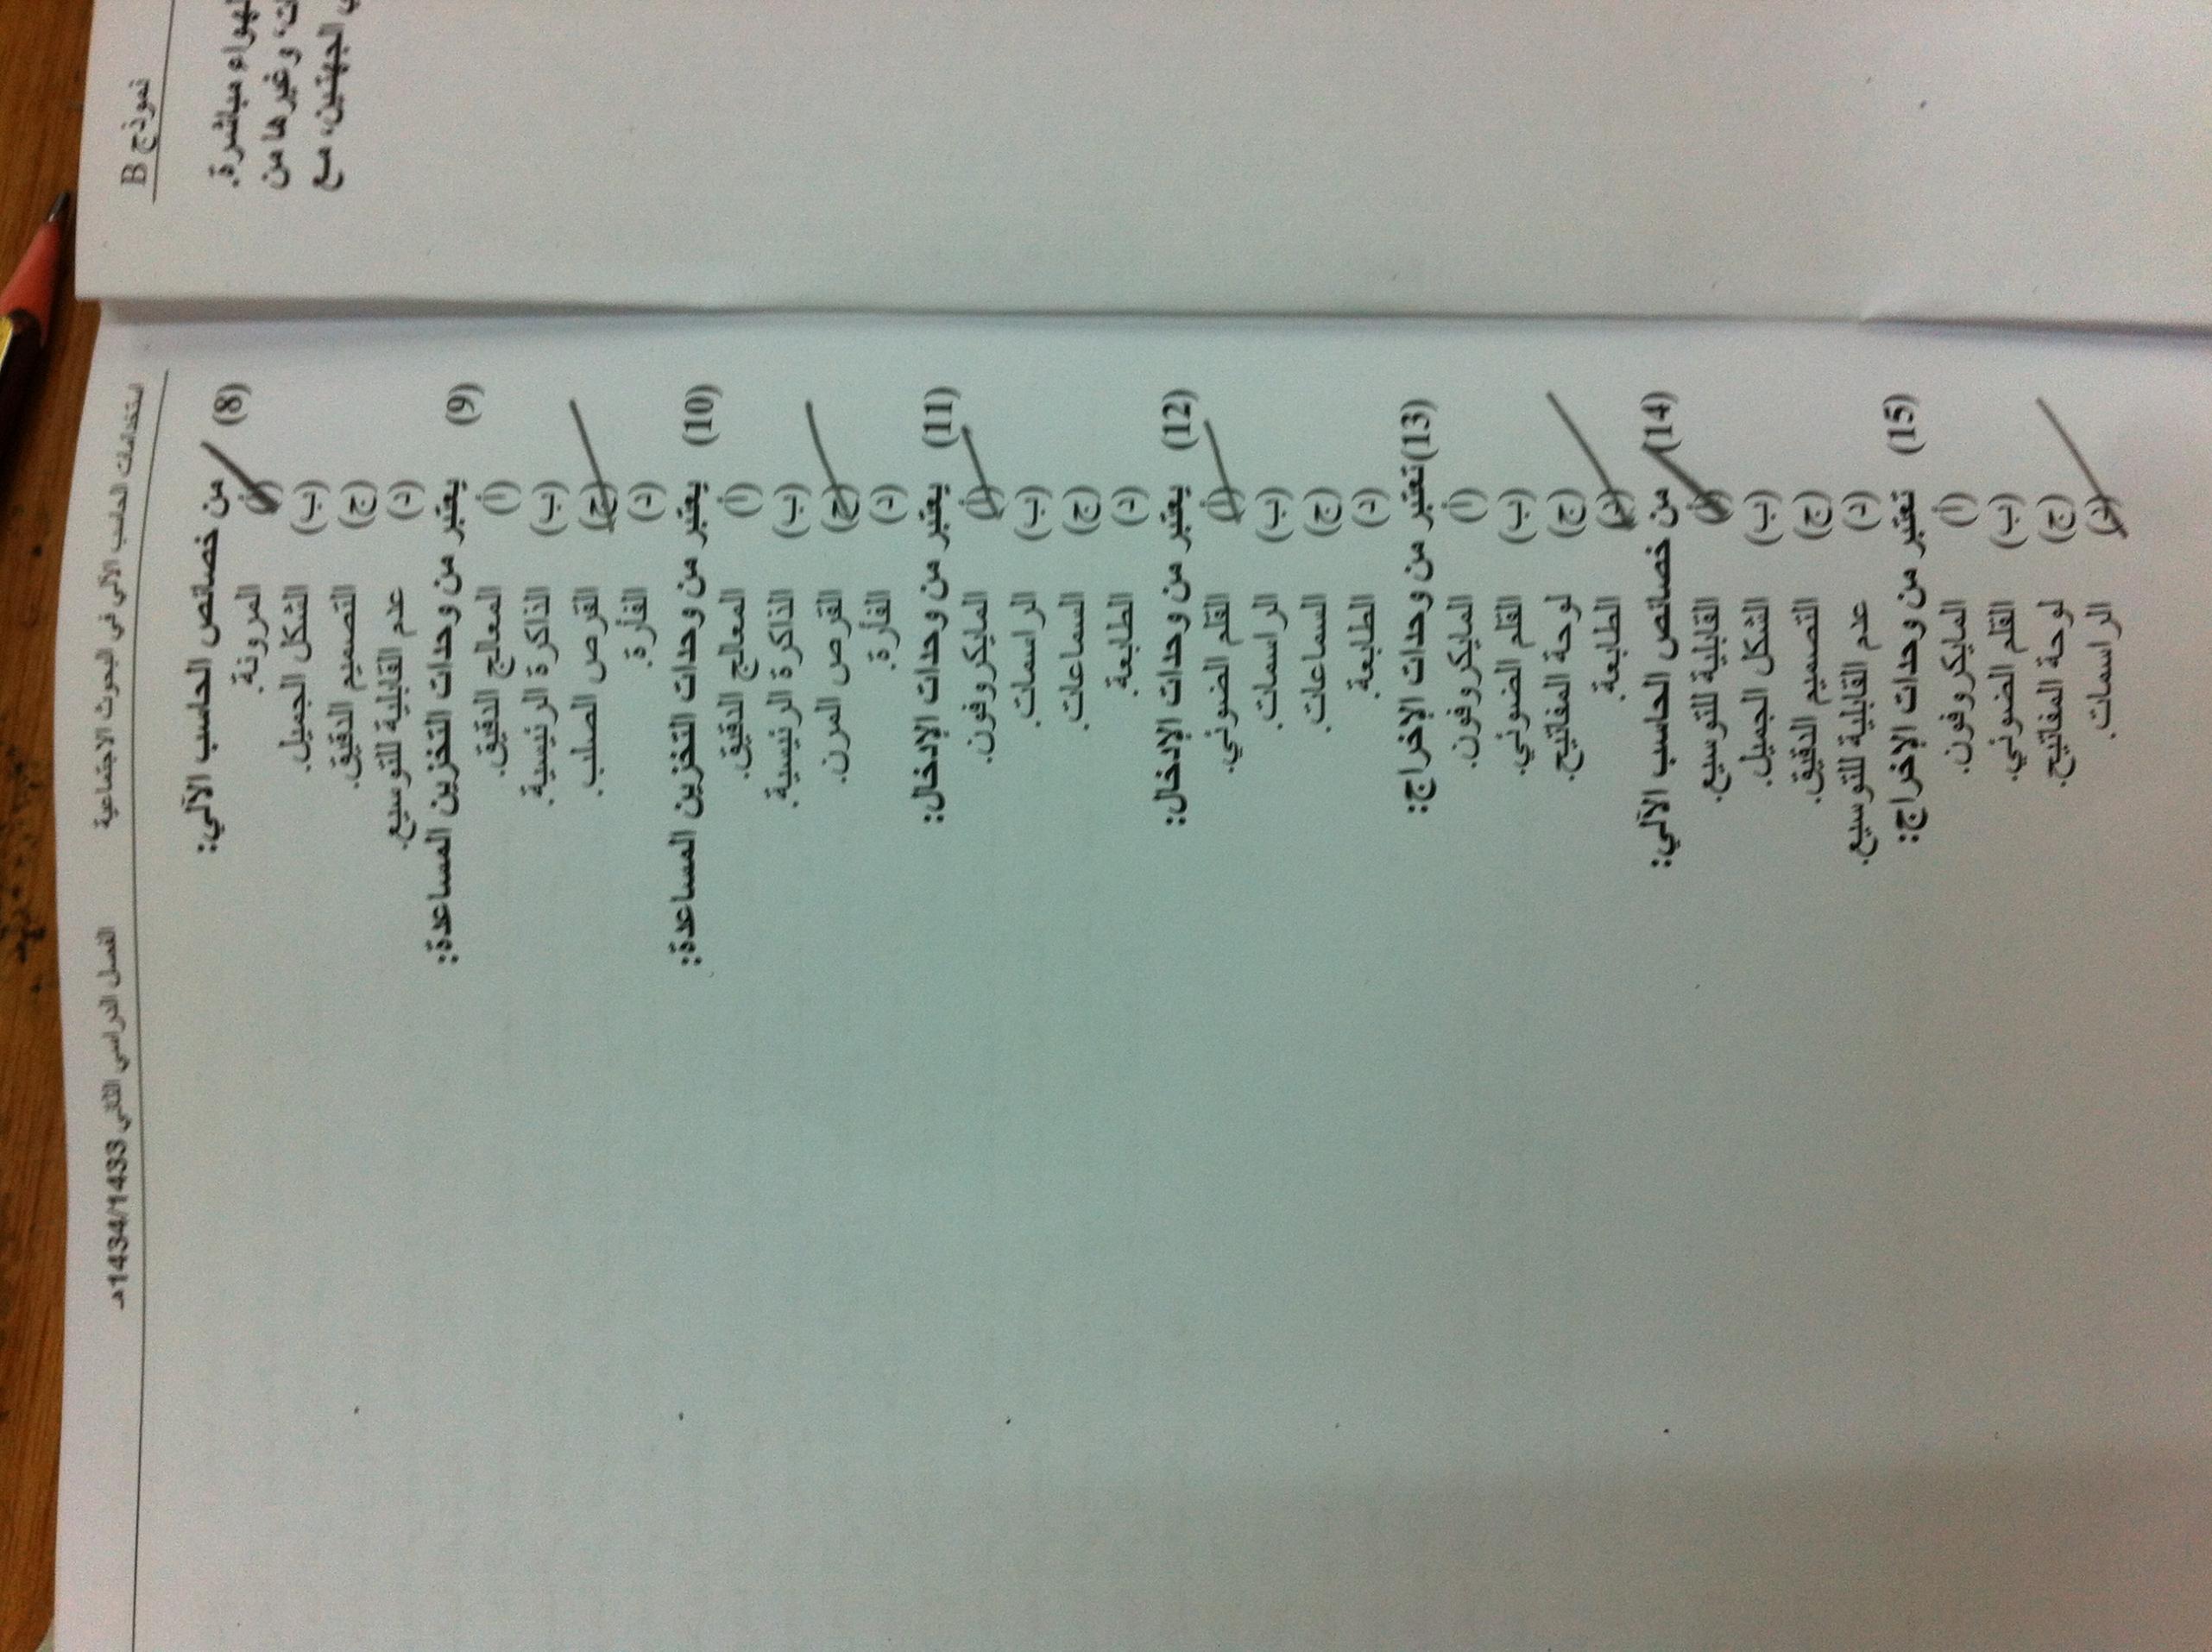 نموذج B
الهواء مباشرة.
وغيرها من
الجهتين، مع
استخدامات الحاسب الآلي في البحوث الاجتماعية الفصل الدراسي الثاني 1434/1433هـ
(8) من خصائص الحاسب الآلي:
(أ) المرونة.
(ب) الشكل الجميل.
(ج) التصميم الدقيق.
(د) عدم القابلية للتوسيع.
(9) يعتبر من وحدات التخزين المساعدة:
(أ) المعالج الدقيق.
(ب) الذاكرة الرئيسية.
(ج) القرص الصلب.
(د) الفأرة.
(10) يعتبر من وحدات التخزين المساعدة:
(أ) المعالج الدقيق.
(ب) الذاكرة الرئيسية.
(ج) القرص المرن.
(د) الفأرة.
(11) يعتبر من وحدات الإدخال:
(أ) المايكروفون.
(ب) الراسمات.
(ج) السماعات.
(د) الطابعة.
(12) يعتبر من وحدات الإدخال:
(أ) القلم الضوئي.
(ب) الراسمات.
(ج) السماعات.
(د) الطابعة.
(13) تعتبر من وحدات الإخراج:
(أ) المايكروفون.
(ب) القلم الضوئي.
(ج) لوحة المفاتيح.
(د) الطابعة.
(14) من خصائص الحاسب الآلي:
(أ) القابلية للتوسيع.
(ب) الشكل الجميل.
(ج) التصميم الدقيق.
(د) عدم القابلية للتوسيع.
(15) تعتبر من وحدات الإخراج:
(أ) المايكروفون.
(ب) القلم الضوئي.
(ج) لوحة المفاتيح.
(د) الراسمات.